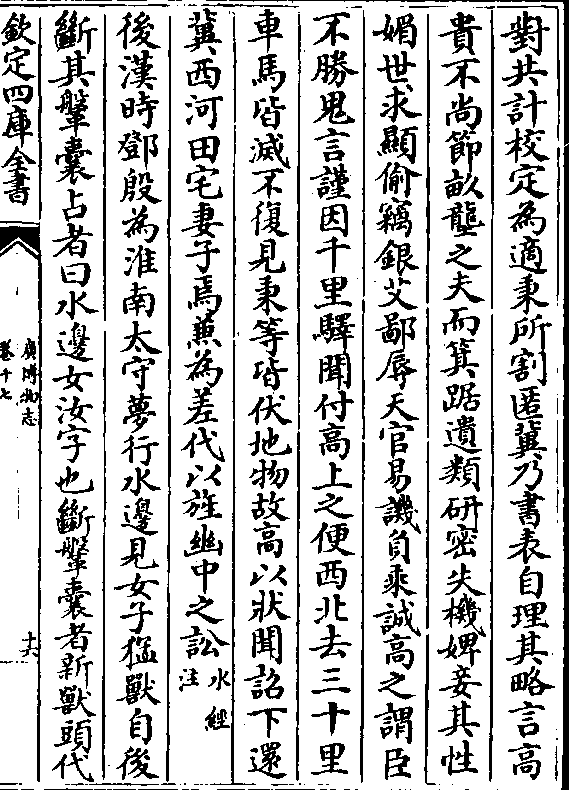 對共計校定為適秉所割匿冀乃書表自理其略言高
貴不尚節畝壟之夫而箕踞遺類研密失機婢妾其性
媚世求顯偷竊銀艾鄙辱天官易譏負乘誠高之謂臣
不勝鬼言謹因千里驛聞付高上之便西北去三十里
車馬皆滅不復見秉等皆伏地物故高以狀聞詔下還
冀西河田宅妻子焉兼為差代以旌幽中之訟水經
注
後漢時鄧殷為淮南太守夢行水邊見女子猛獸自後
斷其鞶囊占者曰水邊女汝字也斷鞶囊者新獸頭代
欽定四庫全書
廣博物志
卷十七
十六